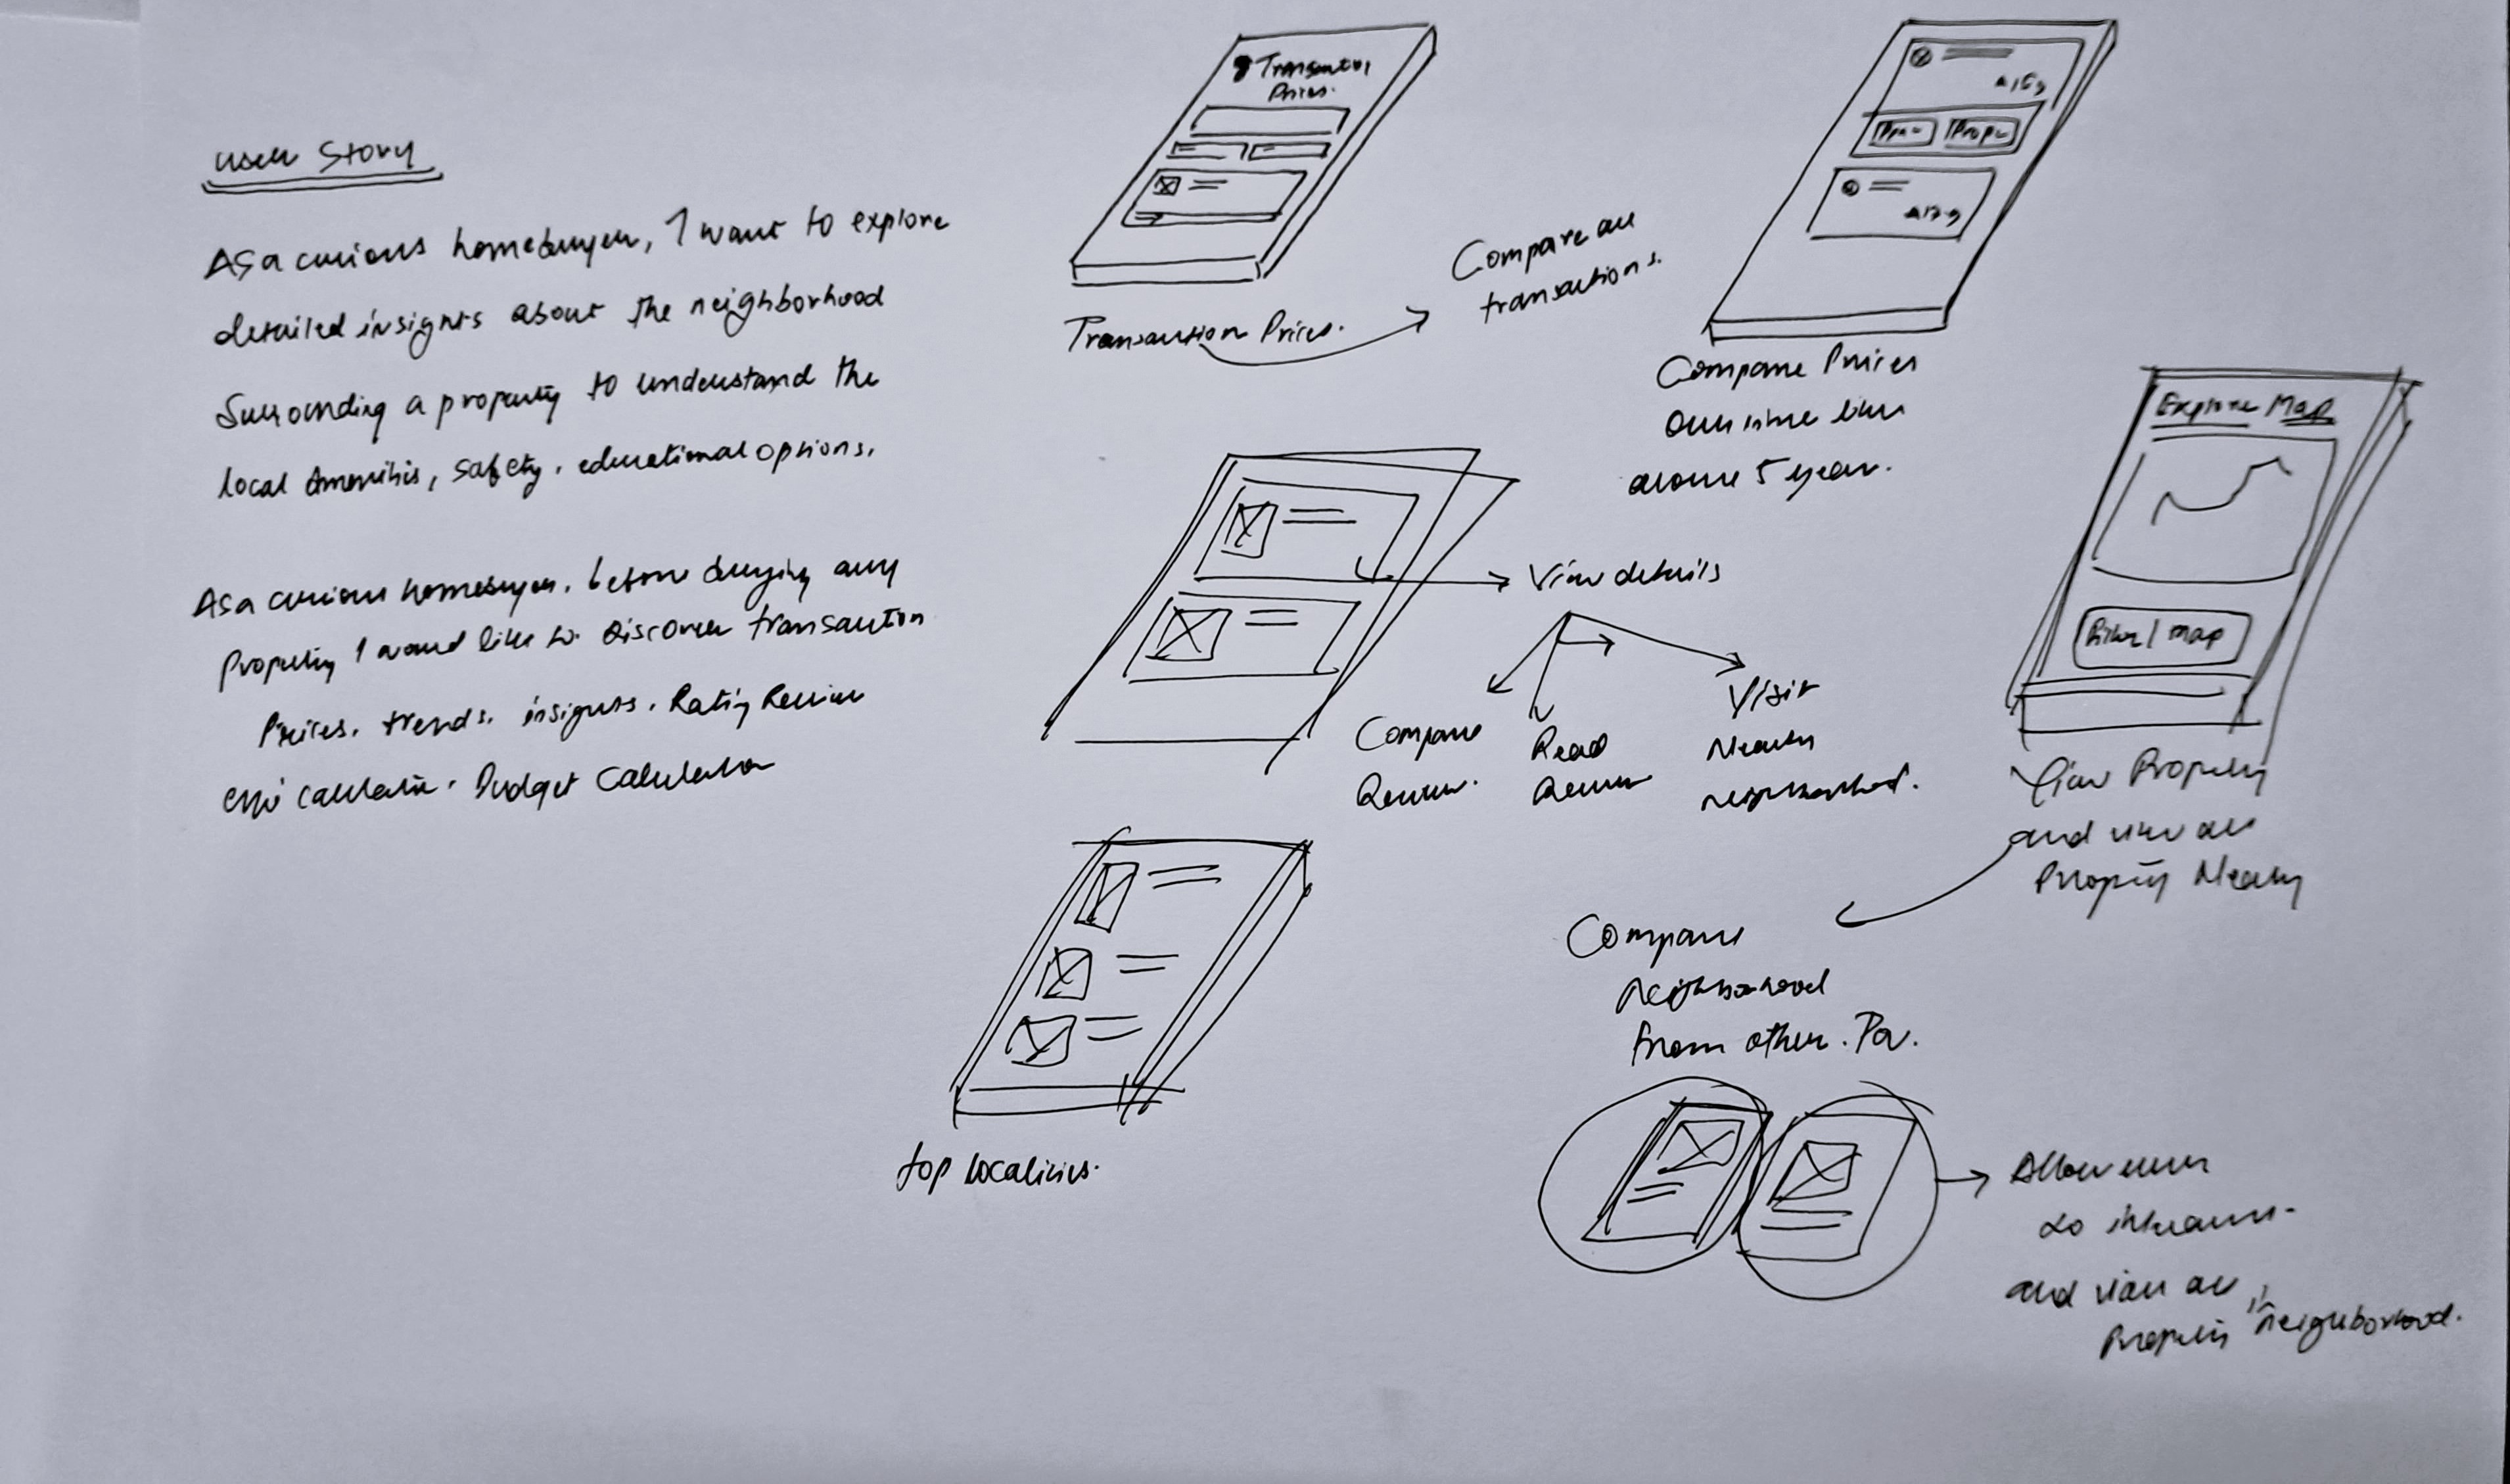 User Story
As a curious homebuyer, I want to explore
detailed insights about the neighborhood
Surrounding a property to understand the
local Amenities, safety, educational options.
As a curious homebuyer, before buying any
Property I would like to discover transaction
Prices, trends, insights, Rating Review
Calculator, Budget Calculator
Transaction
Prices.
Transaction Prices.
Compare all
transactions.
Compare Prices
over time like
around 5 year.
View details
Compare
Review.
Read
Review
Visit
Nearby
neighborhood.
Explore Map
Filter / map
View Property
and view all
Property Nearby
Compare
neighborhood
from other.
top localities.
Allow users
to
and view all
Property in neighborhood.